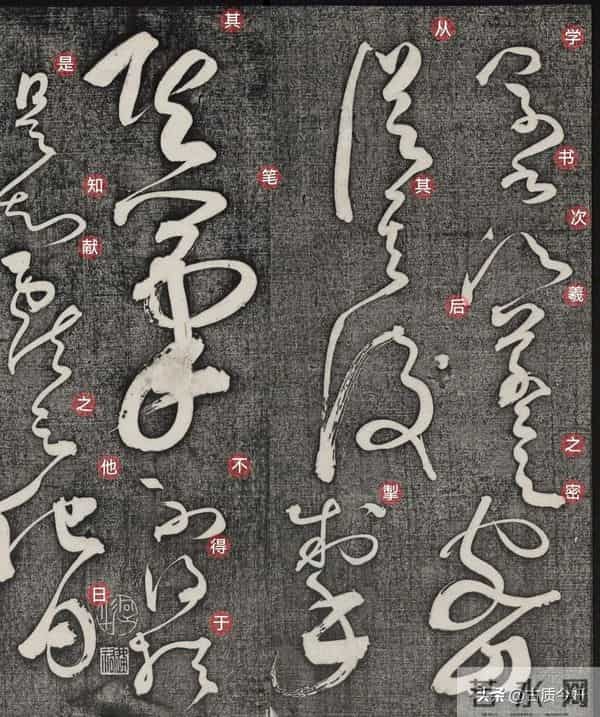 学书次羲之密
从其后掣
其笔不得于
是知献之他日
头条 @古质今妍